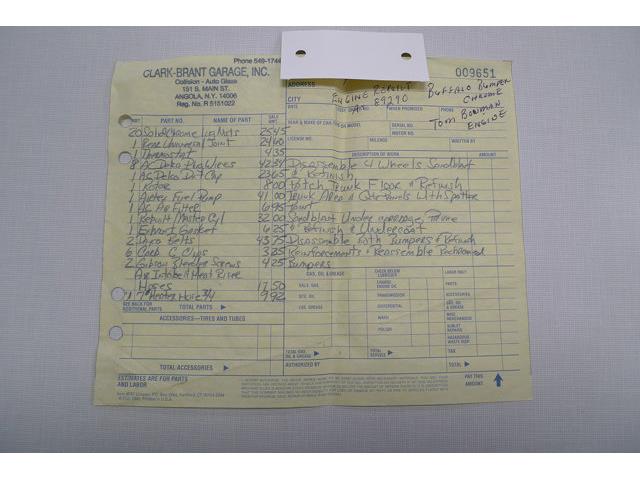 Phone 549-1744
CLARK-BRANT GARAGE, INC.
Collision - Auto Glass
191 S. MAIN ST.
ANGOLA, N.Y. 14006
Reg. No. R 5151022
009651
ADDRESS
CITY
ENGINE REBUILT
AT 89290
BUFFALO BUMPER
CHROME
TOM BOWMAN
ENGINE
DATE
WHEN PROMISED
PHONE
YEAR & MAKE OF CAR
SERIAL NO.
MOTOR NO.
LICENSE NO.
MILEAGE
WRITTEN BY
PART NO. NAME OF PART
DESCRIPTION OF WORK
AMOUNT
20 Solid Chrome Lug Nuts 25 45
1 Rear Universal Joint 24 60
1 Thermostat 4 35
8 AC Delco Plug Wires 42 34 Disassemble 4 Wheels Sandblast
1 AC Delco Dist Cap 23 65 & Refinish
1 Rotor 8 00 Patch Trunk Floor & Refinish
1 Airtex Fuel Pump 41 00 Trunk Area & Qtr Panels With Spatter
1 AC Air Filter 6 95 Paint
1 Rebuilt Master Cyl 32 00 Sandblast Under carriage, Frame
1 Exhaust Gasket 6 25 & Refinish & Undercoat
2 Dayco Belts 43 75 Disassemble Both Bumpers & Refinish
6 Carb C Clips 3 25 Reinforcements & Reassemble Rechromed
2 Gibson Screws 4 25 Bumpers
Air Intake & Heat Riser
Hoses 17 50
7' Heater Hose 3/4 9 92
SEE BACK FOR
ADDITIONAL PARTS
TOTAL PARTS
ACCESSORIES—TIRES AND TUBES
TOTAL ACCESSORIES
ESTIMATES ARE FOR PARTS
AND LABOR
GAS, OIL & GREASE
GALS. GAS
QTS. OIL
LBS. GREASE
TOTAL GAS,
OIL & GREASE
CHECK BELOW
LUBRICATE
CHANGE
ENGINE OIL
TRANSMISSION
DIFFERENTIAL
WASH
POLISH
TOTAL
SERVICE
LABOR ONLY
PARTS
ACCESSORIES
GAS, OIL
& GREASE
MISC.
MERCHANDISE
SUBLET
REPAIRS
HAZARDOUS
WASTE DISP.
TAX
TOTAL
AUTHORIZED BY
PAY THIS
AMOUNT